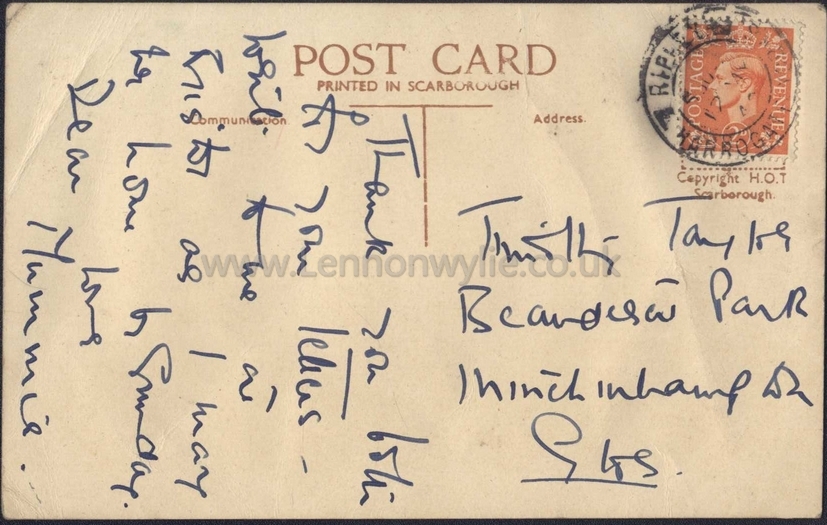 POST CARD
PRINTED IN SCARBOROUGH
Communication.
Address.
RIPLEY
HARROGATE
POSTAGE REVENUE
Copyright H.O.T
Scarborough.
Timothy Taylor
Beaudesert Park
Minchinhampton
Glos.
Thank you both
for your letters -
Write to me at
as I may
be home by Sunday.
love
Dear Mummie.
www.Lennonwylie.co.uk